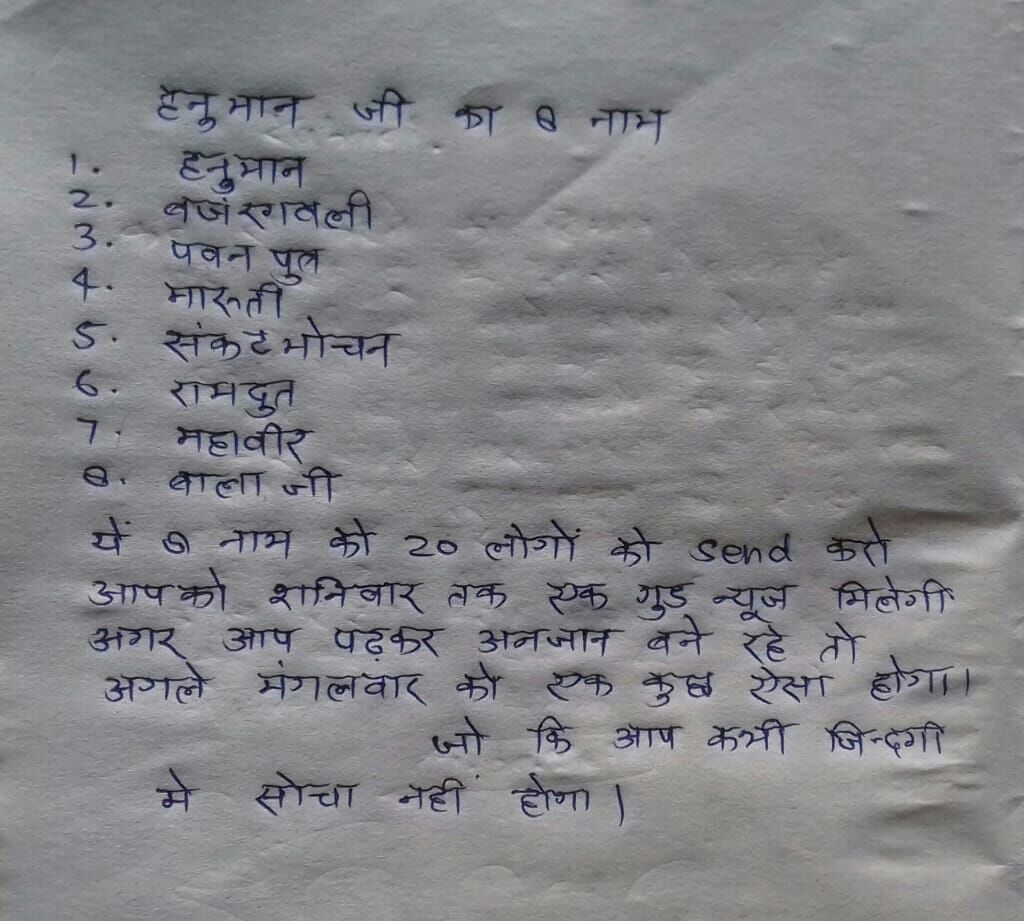 हनुमान जी का 8 नाम
1. हनुमान
2. बजंरगबली
3. पवन पुत्र
4. मारुती
5. संकटमोचन
6. रामदुत
7. महावीर
8. बाला जी
ये 8 नाम को 20 लोगों को send करो
आपको शनिवार तक एक गुड न्यूज मिलेगी
अगर आप पढ़कर अनजान बने रहे तो
अगले मंगलवार को एक कुछ ऐसा होगा।
जो कि आप कभी जिन्दगी
मे सोचा नहीं होगा।